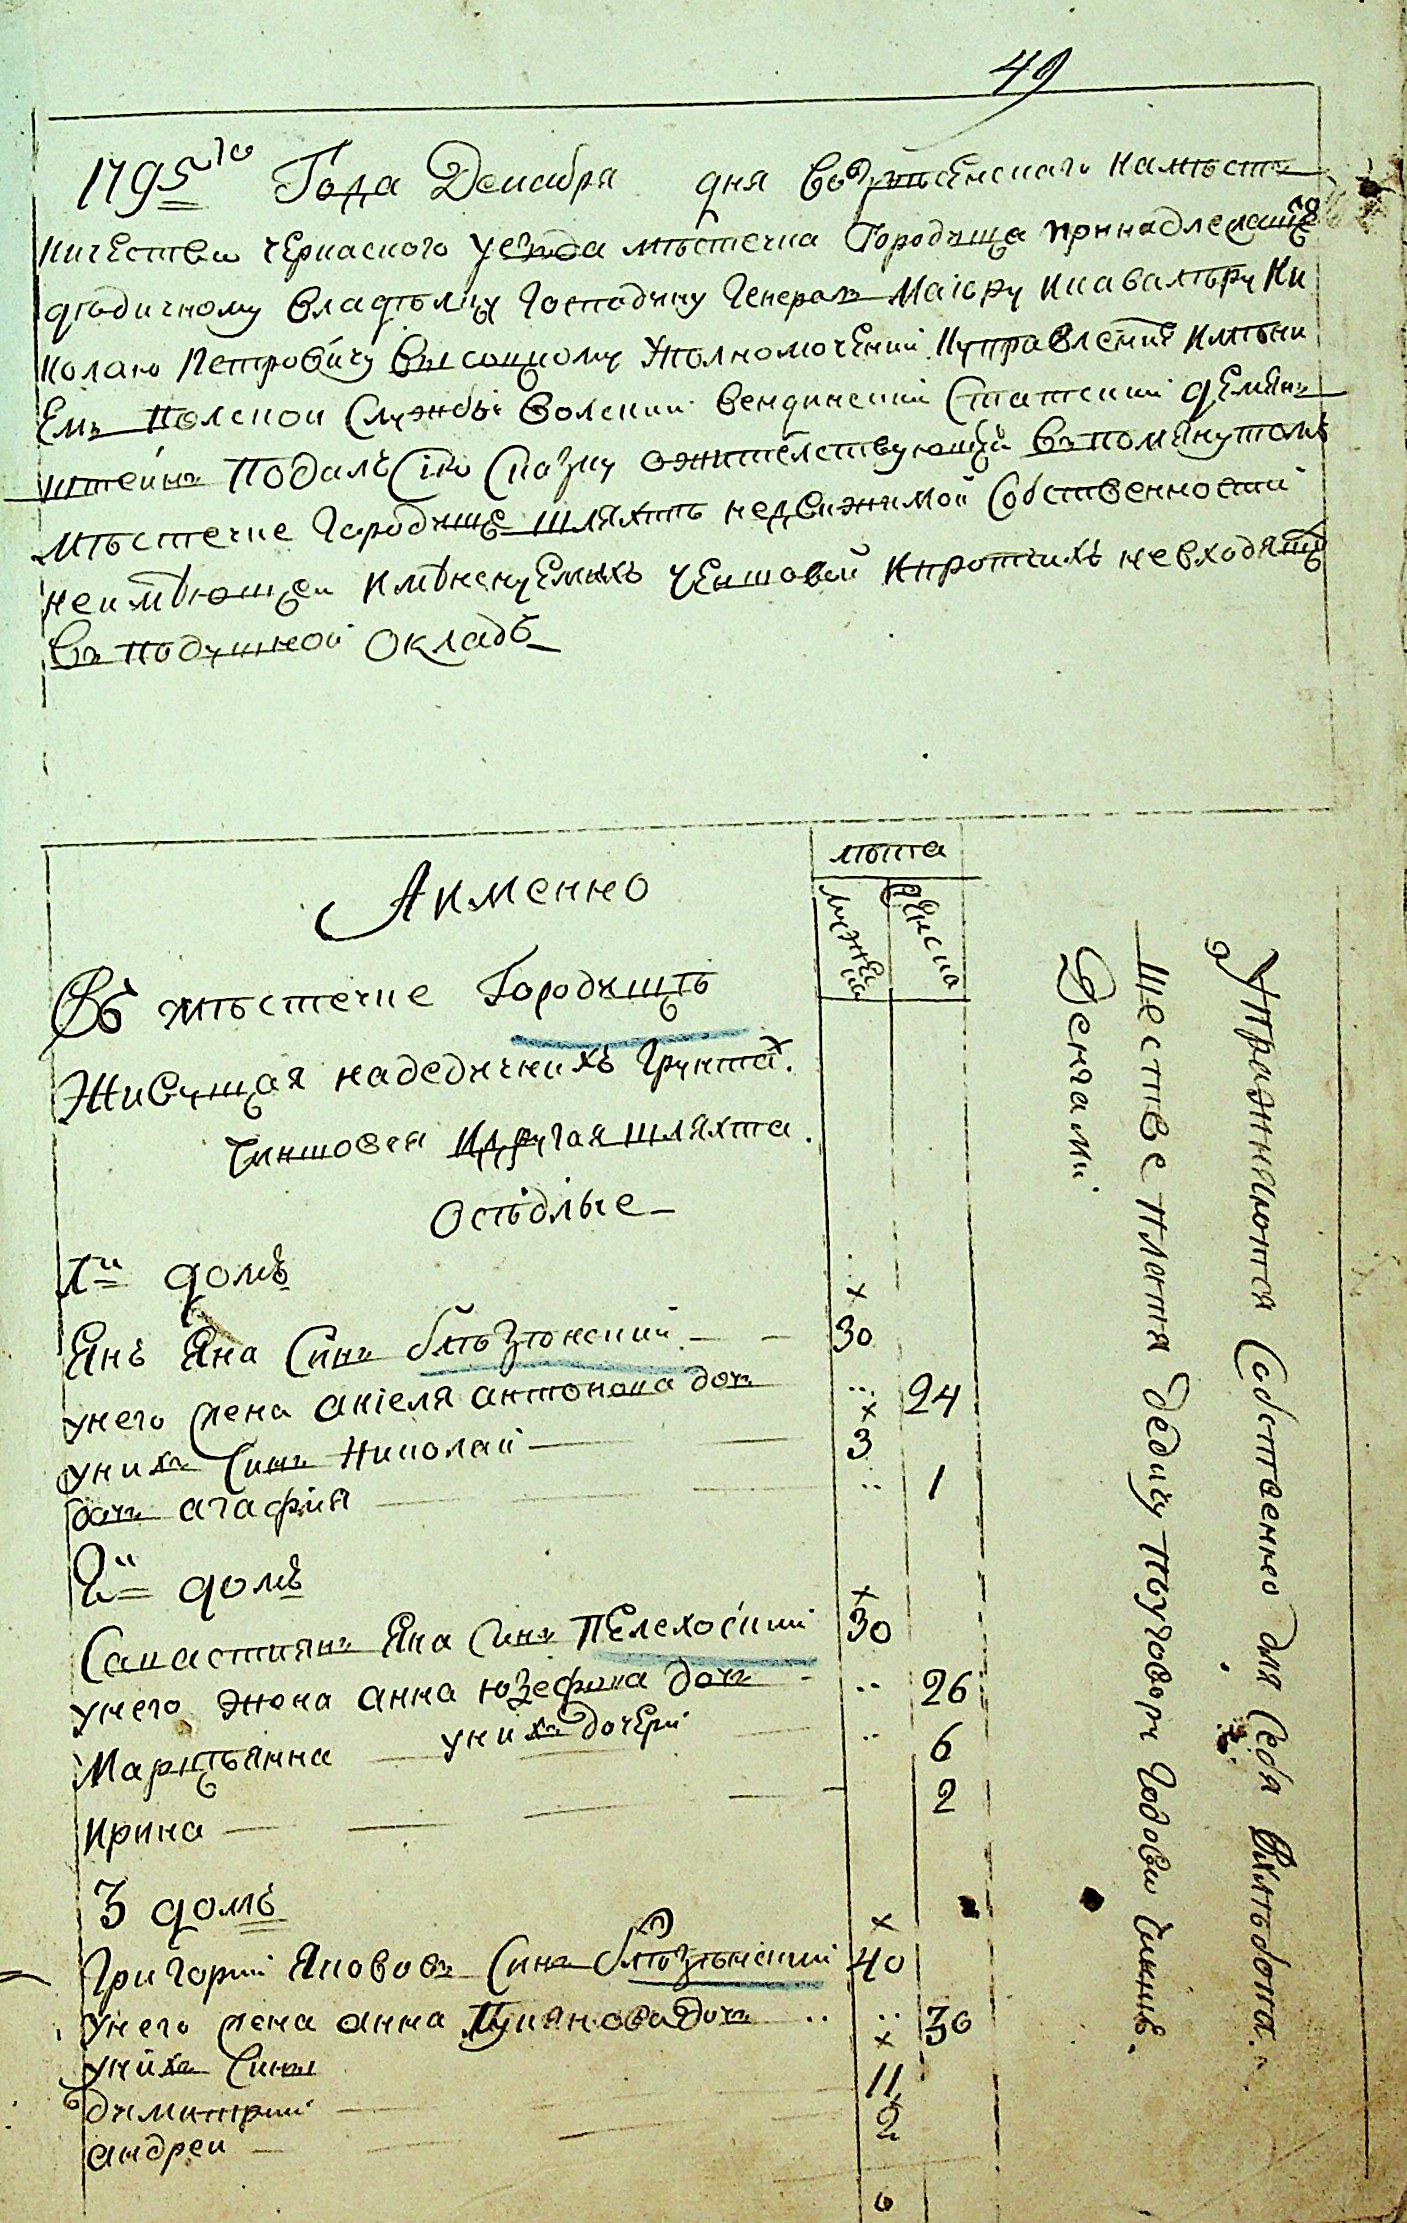 49
1795го Года Декабря дня Вознесенскаго намѣст
ничества Черкаского уезда мѣстечка Городища принадлежащего
дѣдичному владѣлцу Господину Генералъ Маіору и кавалѣру Ни
колаю Петровичу Высоцкому Уполномоченій къ управлению имѣни
емъ Полской Службы Волский
подалъ Сію Сказку о жителствующей въ помянутомъ
мѣстечке Городище шляхтѣ недвижимой Собственности
неимѣющеи именуемыхъ чиншовой и протчихъ невходящ
въ подушной окладъ
А именно
Въ мѣстечке Городищѣ
Живущая на дедичнихъ Грунтах.
чиншовая и другая шляхта.
Осѣдлые
лѣта
мужеска
женска
1й домъ
Янъ Яна Синъ Блѣзнюкский 30
у него жена аніеля антонова дочь 24
у нихъ Синъ Николай 3
дочь агафия 1
2й домъ
Саластиянъ Яна Синъ Пелеховский 30
у него жена анна юзефова дочь 26
у нихъ дочери
Марцѣянна 6
Ирина 2
3 домъ
Григорий Яковов Синъ 40
у него жена анна Лукянова дочь 30
у нихъ Сины
димитрий 11
андреи 2
6
Упражняются Собственно для Себя въ хлѣбопа.
шестве платя дедичу по уговору Годовы чиншъ.
Денгами